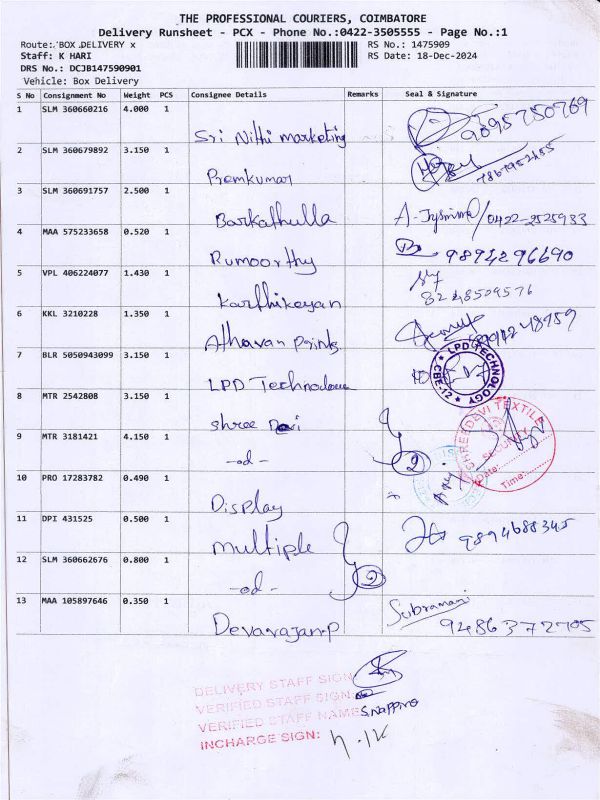 THE PROFESSIONAL COURIERS, COIMBATORE
Delivery Runsheet - PCX - Phone No.:0422-3505555 - Page No.:1
Route: BOX DELIVERY x
RS No.: 1475909
Staff: K HARI
RS Date: 18-Dec-2024
DRS No.: DCJB147590901
Vehicle: Box Delivery
S No Consignment No Weight PCS Consignee Details Remarks Seal & Signature
1 SLM 360660216 4.000 1 Sri Nithi marketing 9095750769
2 SLM 360679892 3.150 1 Premkumar
3 SLM 360691757 2.500 1 Barkathulla 0422-2525933
4 MAA 575233658 0.520 1 Rumoorthy 9894296690
5 VPL 406224077 1.430 1 Karthikeyan 8248509576
6 KKL 3210228 1.350 1 Athavan Prints
7 BLR 5050943099 3.150 1 LPD LPD TECHNOLOGY CBE-12
8 MTR 2542808 3.150 1 Shree Devi
SHREE DEVI TEXTILE
SECURITY
Date:
Time:
9 MTR 3181421 4.150 1 -od- 2
10 PRO 17283782 0.490 1 Display
11 DPI 431525 0.500 1 multiple 9894688345
12 SLM 360662676 0.800 1 -od- 2
13 MAA 105897646 0.350 1 Devarajan.P Subramani 9486372705
DELIVERY STAFF SIGN
VERIFIED STAFF SIGN:
VERIFIED STAFF NAME
INCHARGE SIGN: